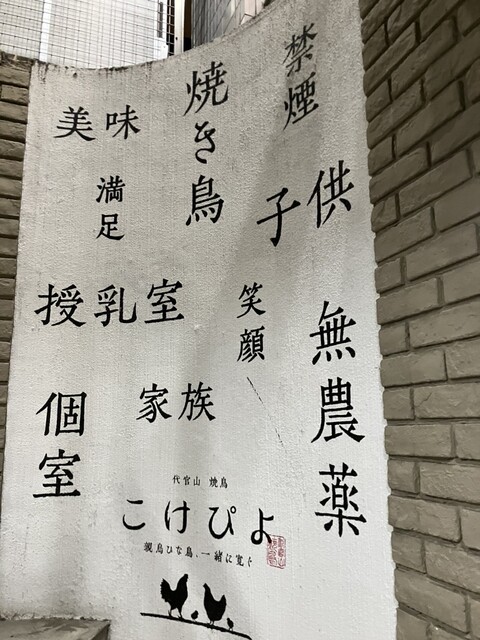 禁煙
焼き鳥
美味
満足
子供
授乳室
笑顔
無農薬
家族
個室
代官山 焼鳥
こけぴよ
親鳥ひな鳥、一緒に寛ぐ